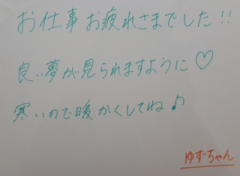 お仕事お疲れさまでした!!
良い夢が見られますように♡
寒いので暖かくしてね♪
ゆずちゃん